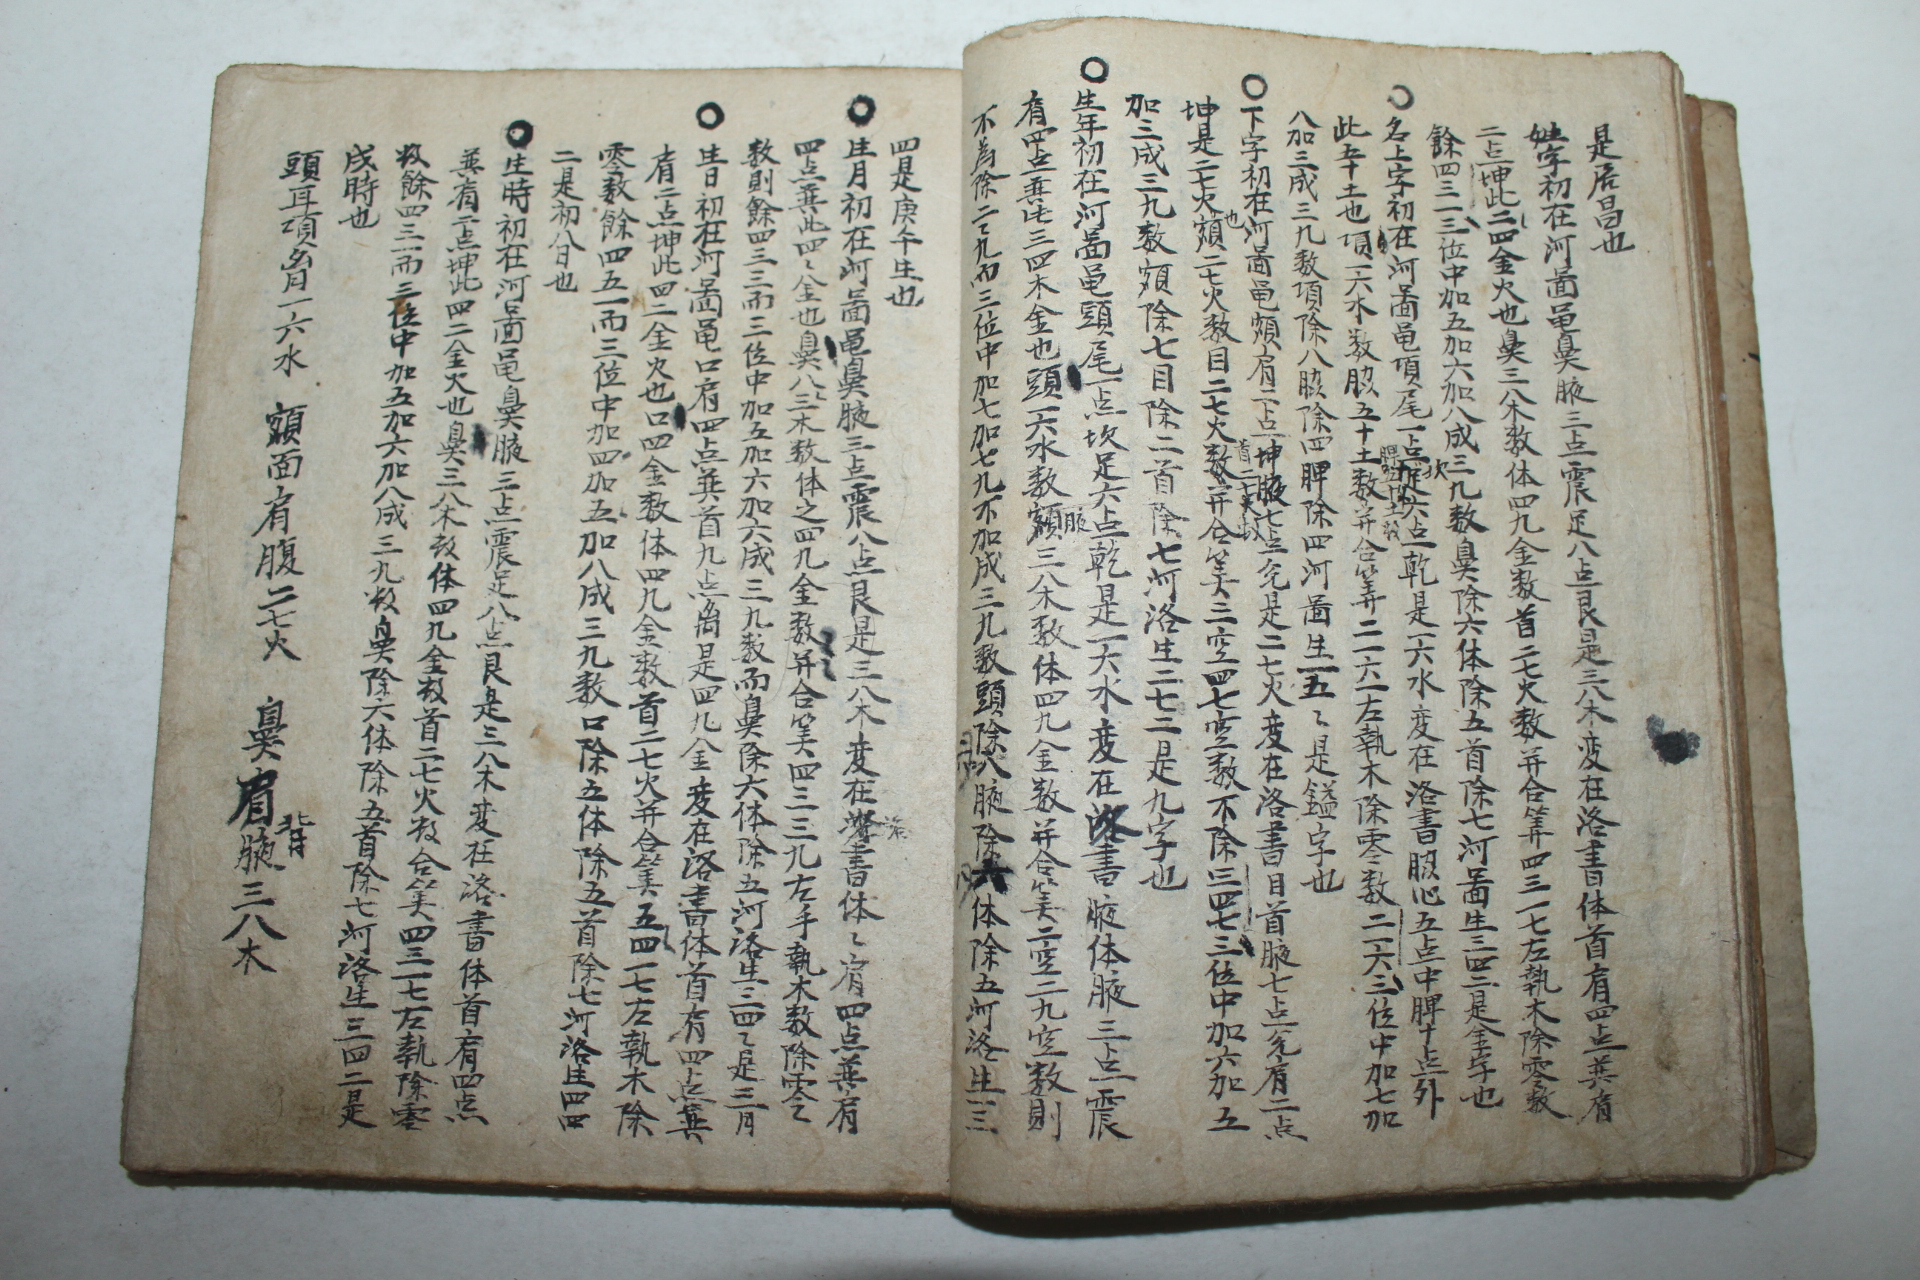 是居昌也
姓字初在河啚黾鼻腋三点震足八点艮是三八木变在洛書体首有四点兼有
二点坤此二四金火也鼻三八木数体四九金数首二七火数并合筭四三一七左執木除零数
餘四三一三位中加五加六加八成三九数鼻除六体除五首除七河啚生三四二是金字也
名上字初在河啚黾項尾一点坎足六点乾是一六水变在洛書脇心五点中脾十点外
此五十土也項一六水数脇五十土数并合筭二一六一左執木除零数二一六三位中加七加
八加三成三九数項除八脇除四脾除四河啚生一五〻是鎰字也
下字初在河啚黾頞有二点坤腋七点兌是二七火变在洛書目首腋七点兌有二点
坤是二七火頞二七火数目二七火数并合筭三空四七空数不除三四七三位中加六加五
加三成三九数頞除七目除二首除七河洛生二七二是九字也
生年初在河啚黾頭尾一点坎足六点乾是一六水变在洛書腋体腋三点震
有四点兼此三四木金也頭一六水数額三八木数体四九金数并合筭二空二九空数則
不為除二〻九而三位中加七加七九不加成三九数頭除八腋除六体除五河洛生一三
四是庚午生也
生月初在河啚黾鼻腋三点震八点艮是三八木变在洛書体〻有四点兼有
四点兼此四〻金也鼻八三木数体之四九金数并合筭四三三九左手執木数除零〻
数則餘四三三而三位中加五加六加六成三九数而鼻除六体除五河洛生三四〻是三月
生日初在河啚黾口有四点兼首九点离是四九金变在洛書体首有四点兼
有二点坤此四二金火也口四金数体四九金数首二七火并合筭五四一七左執木除
零数餘四五一而三位中加四加五加八成三九数口除五体除五首除七河洛生四四
二是初八日也
生時初在河啚黾鼻腋三点震足八点艮是三八木变在洛書体首有四点
兼有二点坤此四二金火也鼻三八木数体四九金数首二七火数合筭四三一七左執除零
数餘四三一而三位中加五加六加八成三九数鼻除六体除五首除七河洛生三四二是
戌時也
頭耳項 一六水 額面有腹二七火 鼻肩背腋三八木